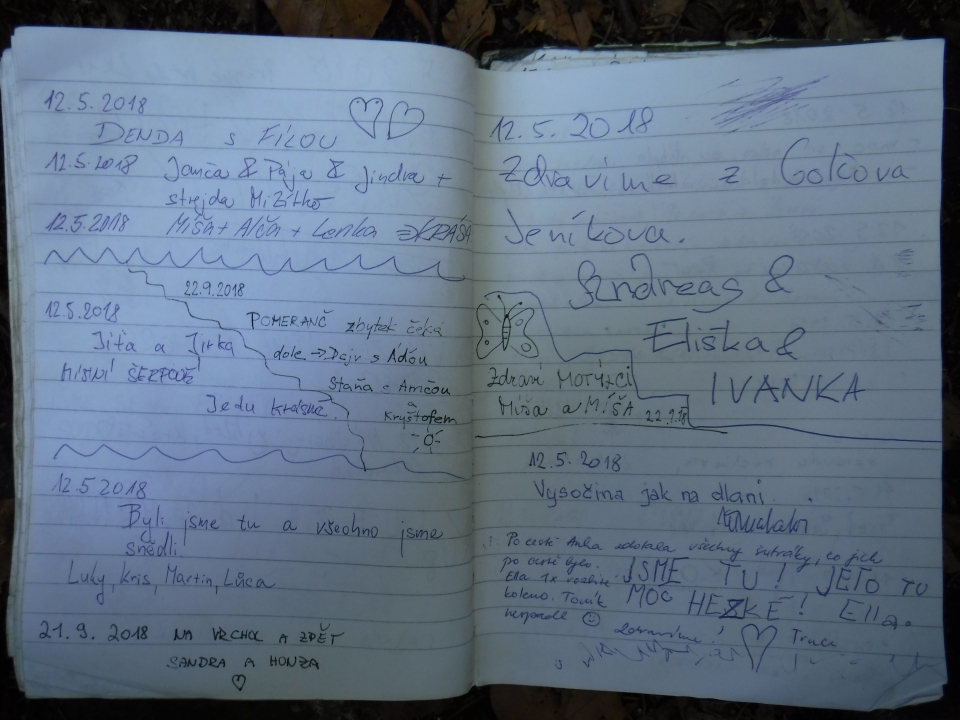 12.5.2018
DENDA S FÍLOU
12.5.2018 Janča & Pája & Jindra +
strejda
12.5.2018 Míša + Alča + Lenka KRÁSA
22.9.2018
POMERANČ zbytek čeká
dole → Dajv s Áďou
Staňa s Amčou
a
Kryštofem
12.5.2018
Jiťa a Jirka
MÍSTNÍ
Jedu
12.5 2018
Byli jsme tu a všeohno jsme
snědli.
Luky, Kris, Martin, Lůca
21.9. 2018 NA VRCHOL A ZPĚT
SANDRA A HONZA
12.5.2018
Zdravíme z Golčova
Jeníkova.
Andreas &
Eliška &
IVANKA
Zdraví MOTÝLCI
Míša a MÍŠA 22.9.18
12.5.2018
Vysočina jak na dlani.
Po cestě Anka zdolala všechny šutráky, co jich
po cestě bylo.
Ella 1x rozbité
koleno. Toník
nespadl ☺ Zdravíme!
JSME TU! JE TO TU
MOC HEZKÉ! Ella.